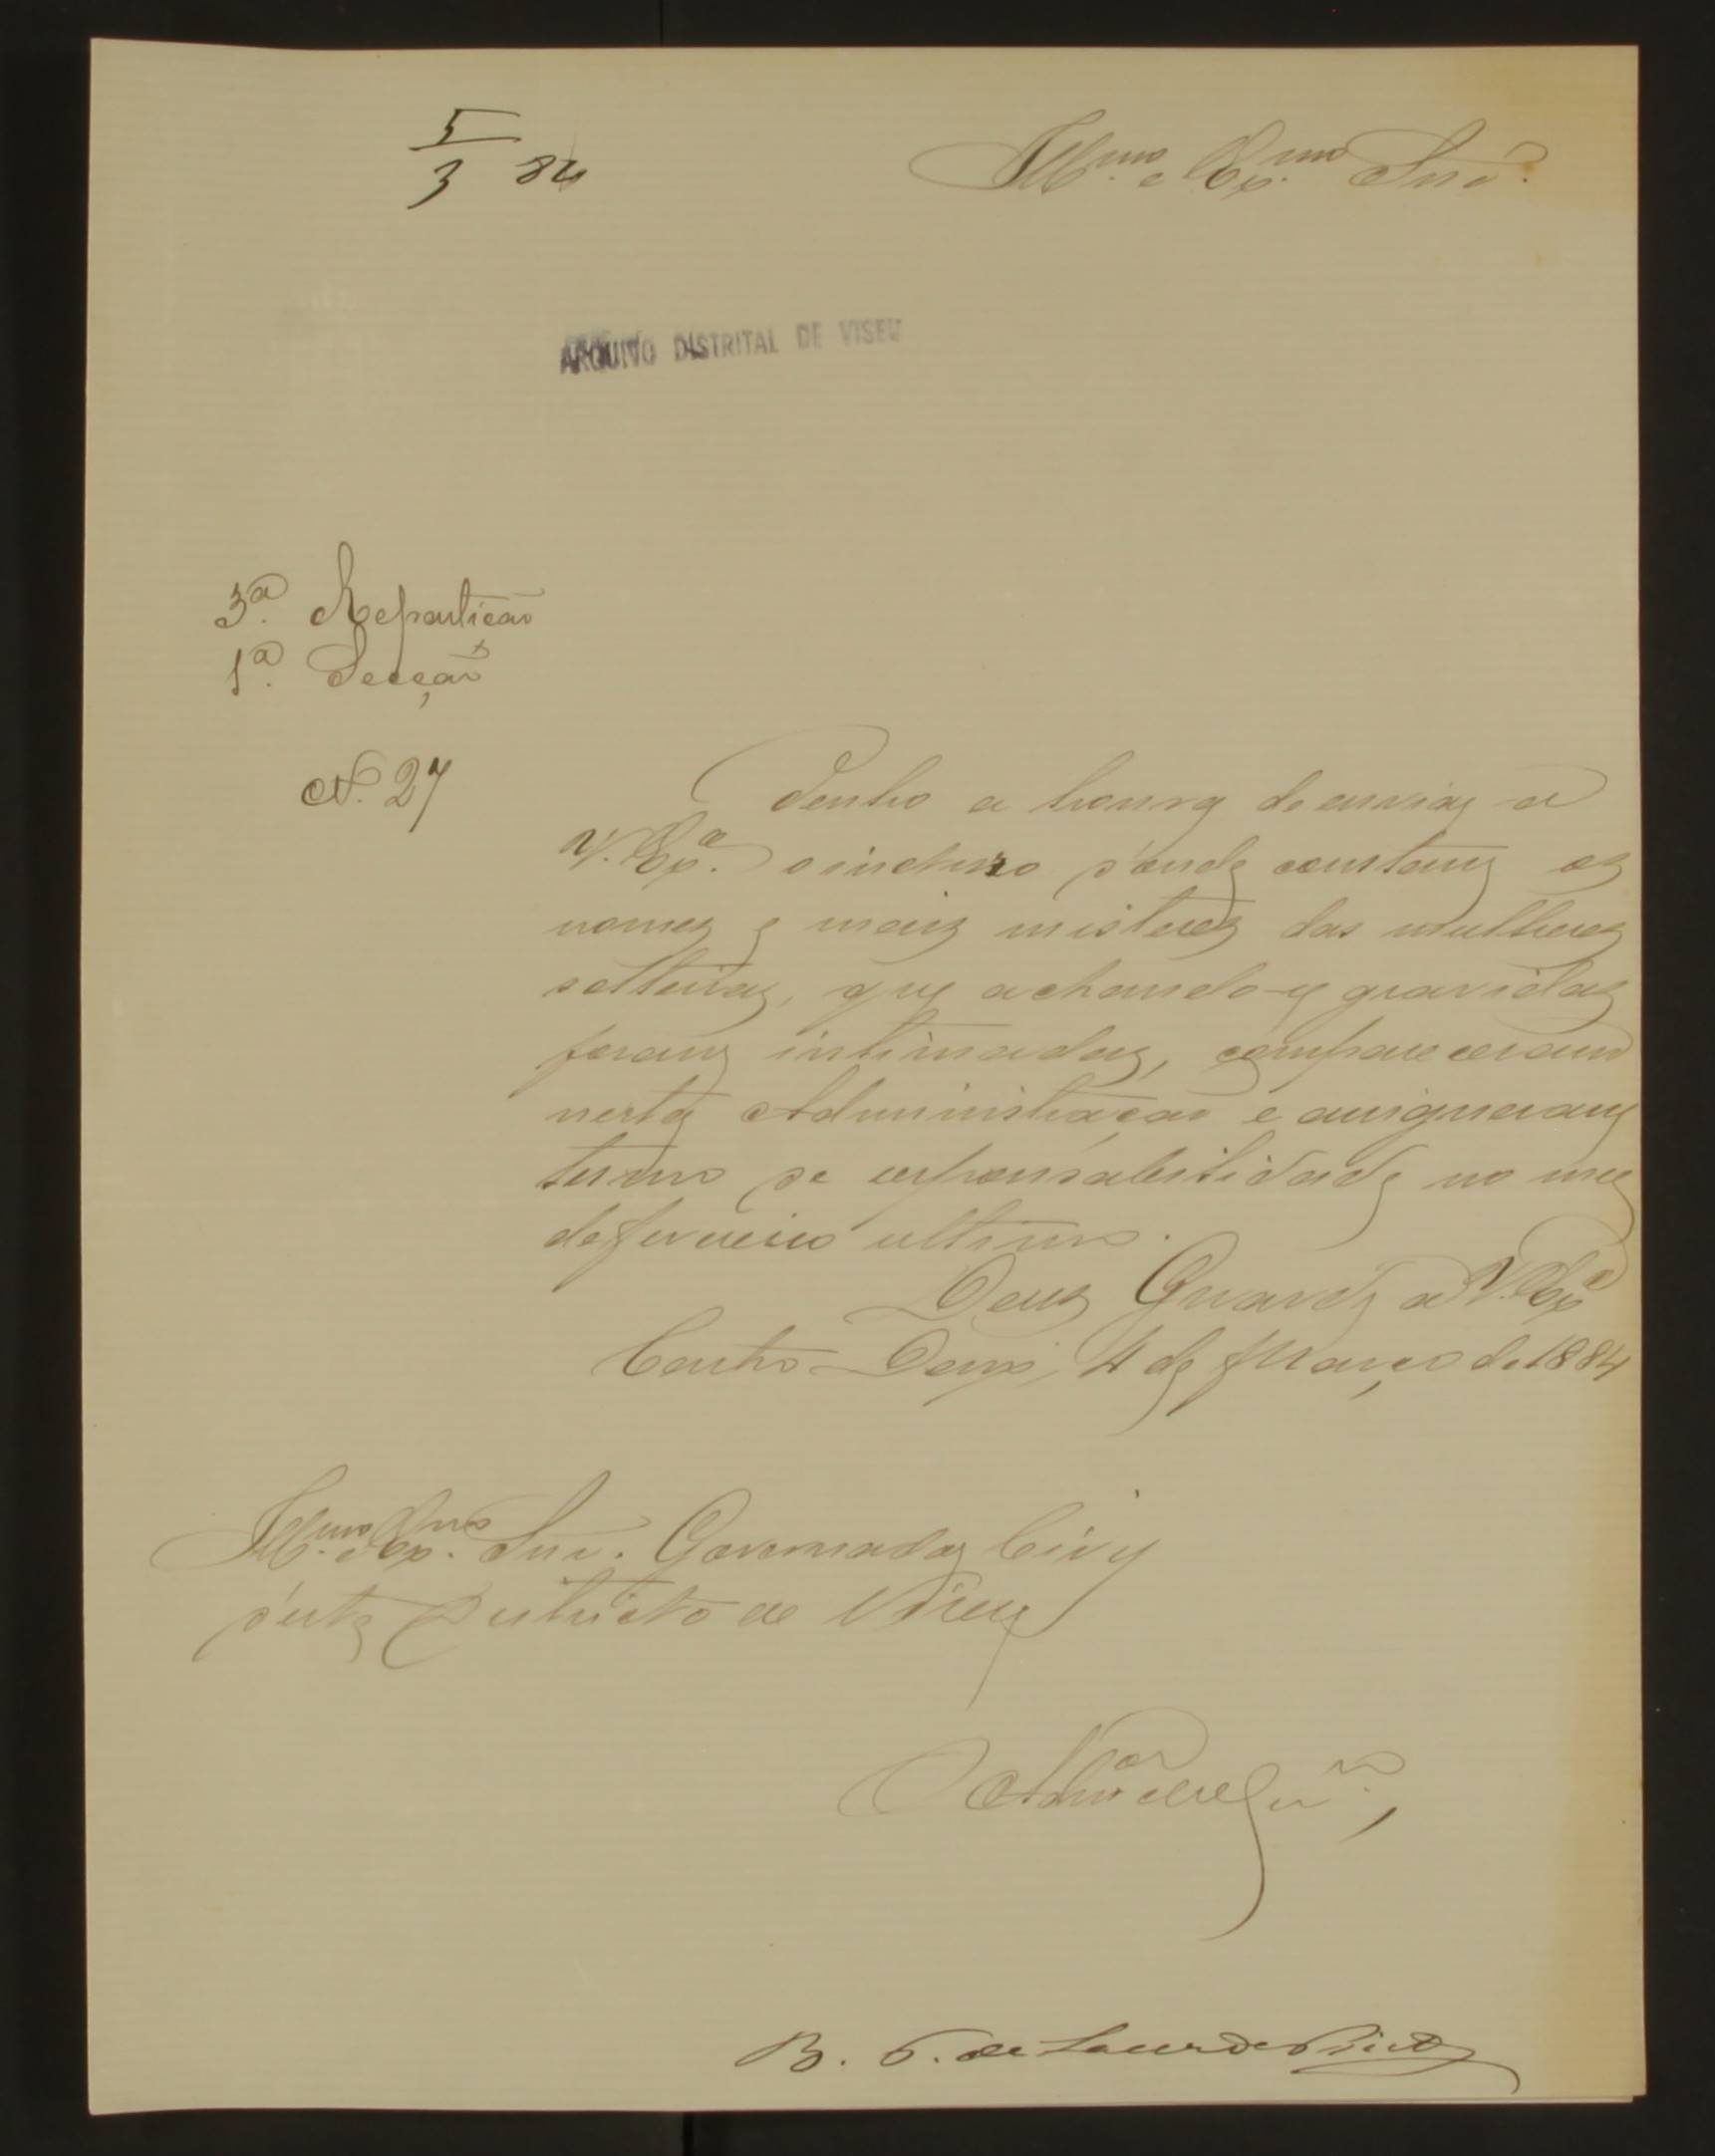 5
3 84
Ill.mo e Ex.mo Snr.
ARQUIVO DISTRITAL DE VISEU
3.ª Repartição
1.ª Secção
N. 27
Tenho a honra de enviar a
V. Ex.ª o incluzo d'onde constam os
nomes e mais misteres das mulheres
solteiras, que achando-se gravidas
foram intimadas, compareceram
nesta Administração e assignaram
termo de responsabilidade no mez
de fevereiro ultimo.
Deus Guarde a V. Ex.ª
Castro Daire, 4 de Março de 1884
Ill.mo e Ex.mo Snr. Governador Civil
d'este Districto de Viseu
O Adm.or
B. de Lacerda Pinto